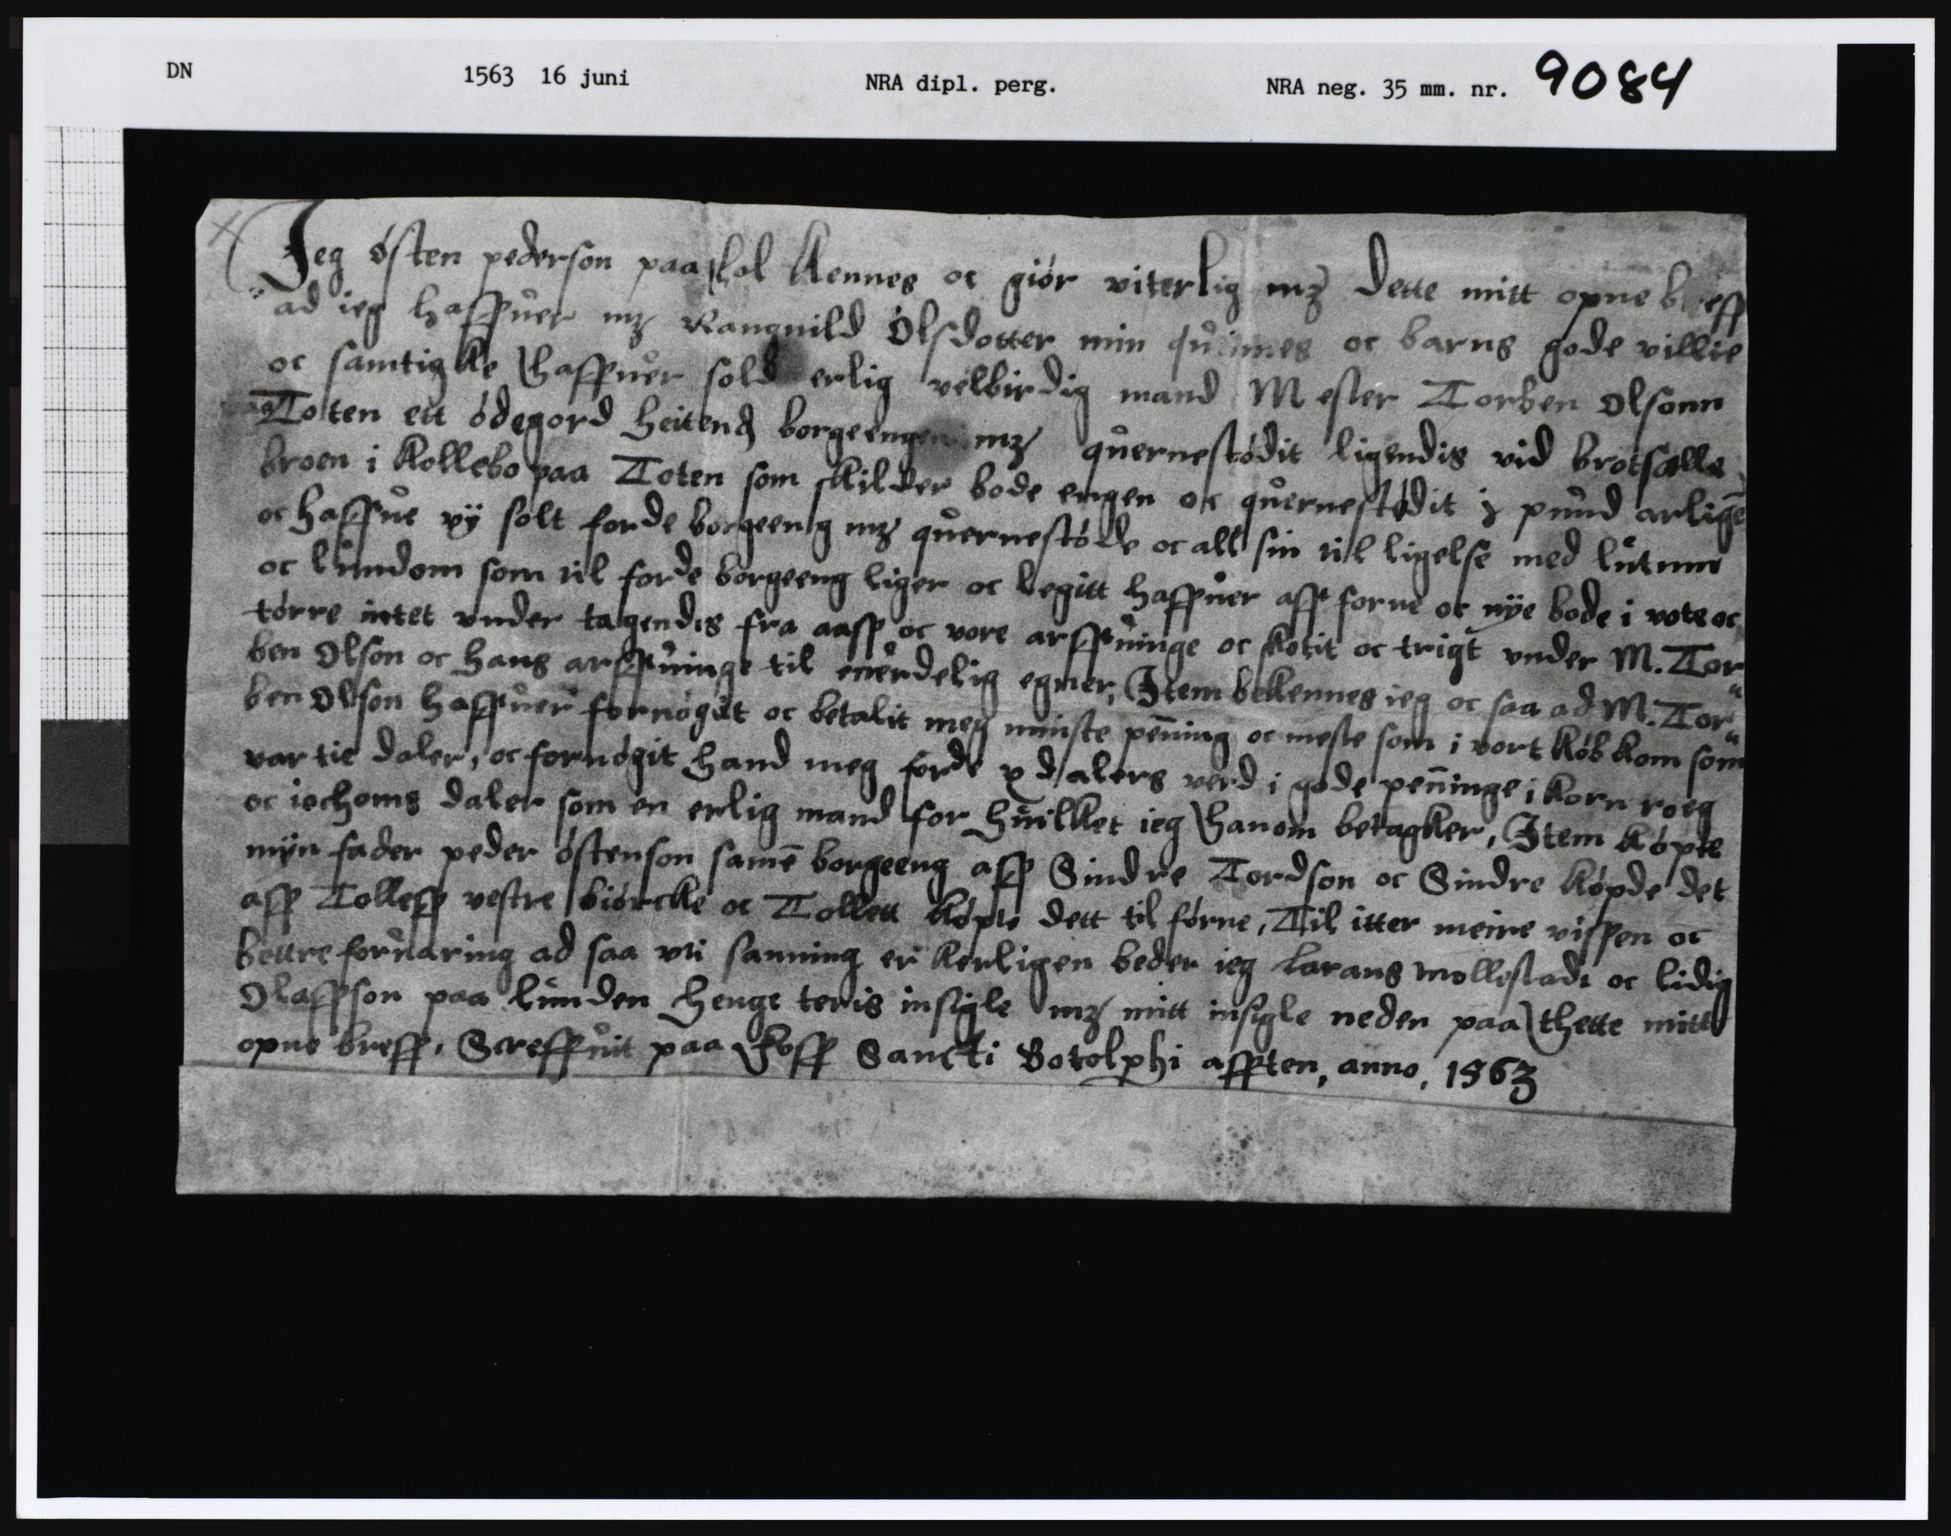 DN 1563 16 juni NRA dipl. perg. NRA neg. 35 mm. nr. 9084
Jeg østen pederson paa hol kennes oc giør viterlig mz dette mitt opne breff
ad ieg haffuer mz Rangnild Olsdotter min quinnes oc barns gode villie
oc samtigkke haffuer sold erlig velbirdig mand Mester Torben Olsonn
paa Toten ett ødegord heitend borgeengen mz quernestødit ligendis vid brotsælle
broen i kollebo paa Toten som skilder bode engen oc quernestødit pund arligen
oc haffue vÿ solt forde borgeeng mz quernestøde oc all sin til ligelse med lutum
oc lundom som til forde borgeeng liger oc legitt haffuer aff forne oc nÿe bode i vote oc
tørre intet vnder tagendis fra aass oc vore arffuinge oc skøtit oc trigt vnder M. Tor
ben Olson oc hans arffuinge til euerdelig egner, Item bekennes ieg oc saa ad M. Tor
ben Olson haffuer fornøgit oc betalit meg minste penning oc meste som i vort køb kom som
var tie daler, oc fornøgit hand meg forde x dalers verd i gode penninge i korn roeg
oc iochoms daler som en erlig mand for huilket ieg hanom betagker, Item køpte
mÿn fader peder østenson samme borgeeng aff Sindre Tordson oc Sindre køpde det
aff Tolleff vestre biørcke oc Tollett køpte dett til førne, Til itter meire vissen oc
bettre foruaring ad saa vti sanning er kerligen beder ieg larans mollestadt oc lidig
Olaffson paa lunden henge teris insigle mz mitt insigle neden paa thette mitt
opne breff, Screffuit paa Hoff Sancti Botolphi afften, anno, 1563